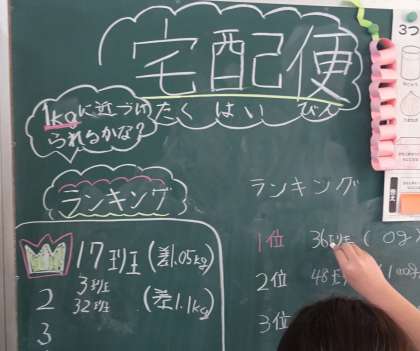 宅配便
たくはいびん
1kgに近づけ
られるかな?
ランキング
17班 (差1.05kg)
3班
2 32班 (差1.1kg)
3
ランキング
1位 36班 ( 0g)
2位 48班
3位
3つ